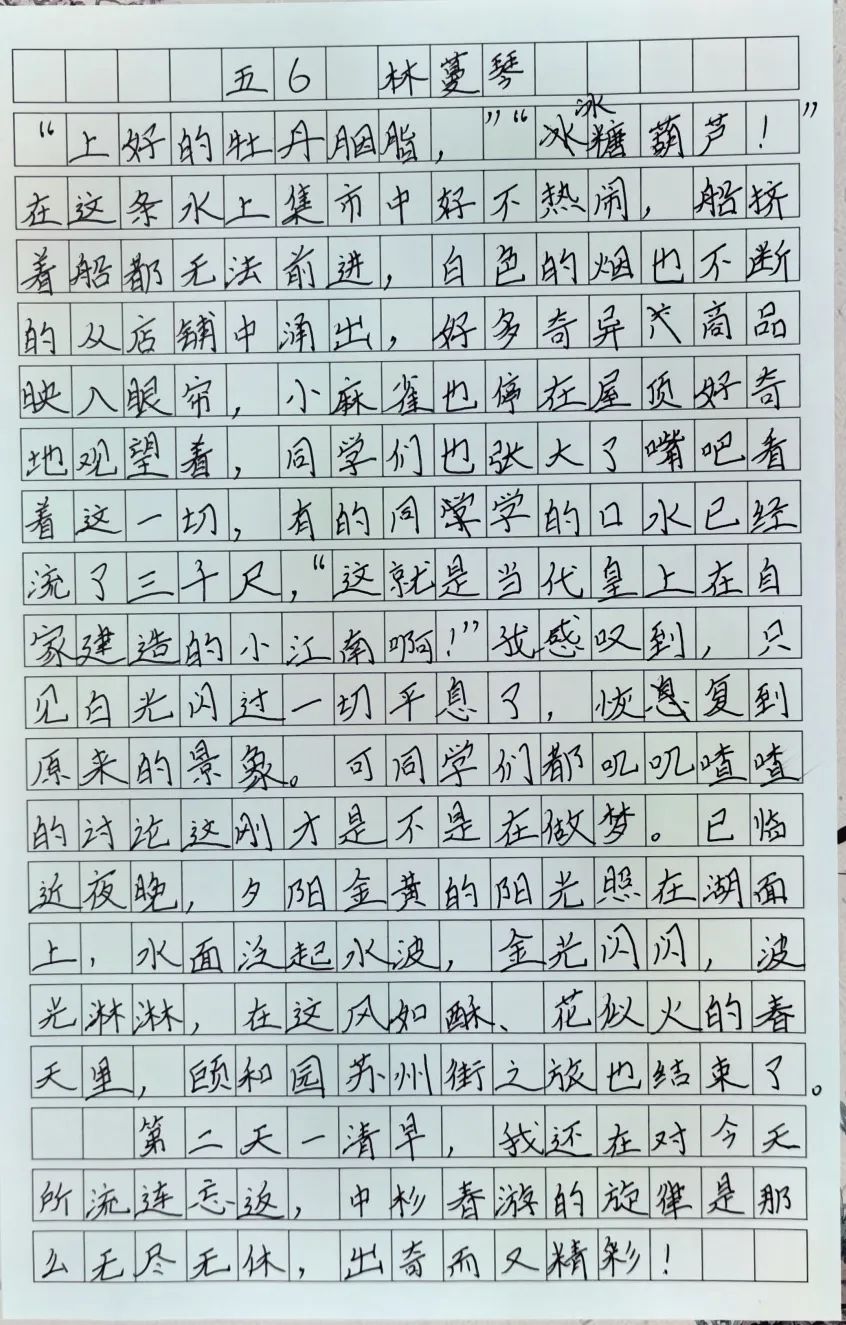 五6 林蔓琴
“上好的牡丹胭脂，”“冰糖葫芦！”
在这条水上集市中好不热闹，船挤
着船都无法前进，白色的烟也不断
的从店铺中涌出，好多奇异商品
映入眼帘，小麻雀也停在屋顶好奇
地观望着，同学们也张大了嘴吧看
着这一切，有的同学学的口水已经
流了三千尺，“这就是当代皇上在自
家建造的小江南啊！”我感叹到，只
见白光闪过一切平息了，恢复到
原来的景象。可同学们都叽叽喳喳
的讨论这刚才是不是在做梦。已临
近夜晚，夕阳金黄的阳光照在湖面
上，水面泛起水波，金光闪闪，波
光淋淋，在这风如酥、花似火的春
天里，颐和园苏州街之旅也结束了。
第二天一清早，我还在对今天
所流连忘返，中杉春游的旋律是那
么无尽无休，出奇而又精彩！